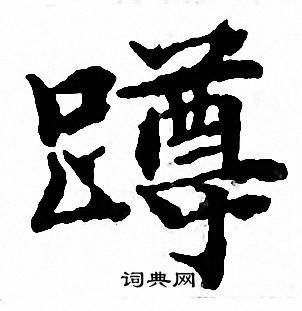 蹲
词典网